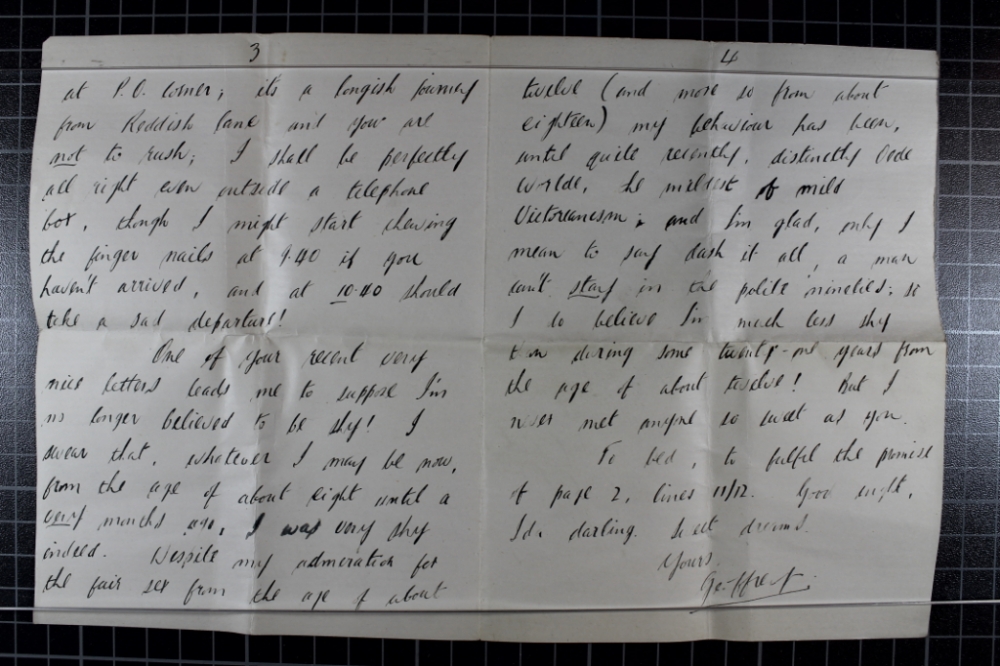 3
at P.O. corner; it's a longish journey
from Reddish Lane and you are
not to rush; I shall be perfectly
all right even outside a telephone
box, though I might start chewing
the finger nails at 9.40 if you
haven't arrived, and at 10.40 should
take a sad departure!
One of your recent very
nice letters leads me to suppose I'm
no longer believed to be shy! I
swear that, whatever I may be now,
from the age of about eight until a
very months ago, I was very shy
indeed. Despite my admiration for
the fair sex from the age of about
4
twelve (and more so from about
eighteen) my behaviour has been,
until quite recently, distinctly Olde
Worlde, the mildest of mild
Victorianism; and I'm glad, only I
mean to say dash it all, a man
can't stay in the polite nineties; so
I do believe I'm much less shy
than during some twenty-one years from
the age of about twelve! But I
never met anyone so sweet as you.
To bed, to fulfil the promise
of page 2, lines 11/12. Good night,
darling. Sweet dreams.
Yours,
Geoffrey.